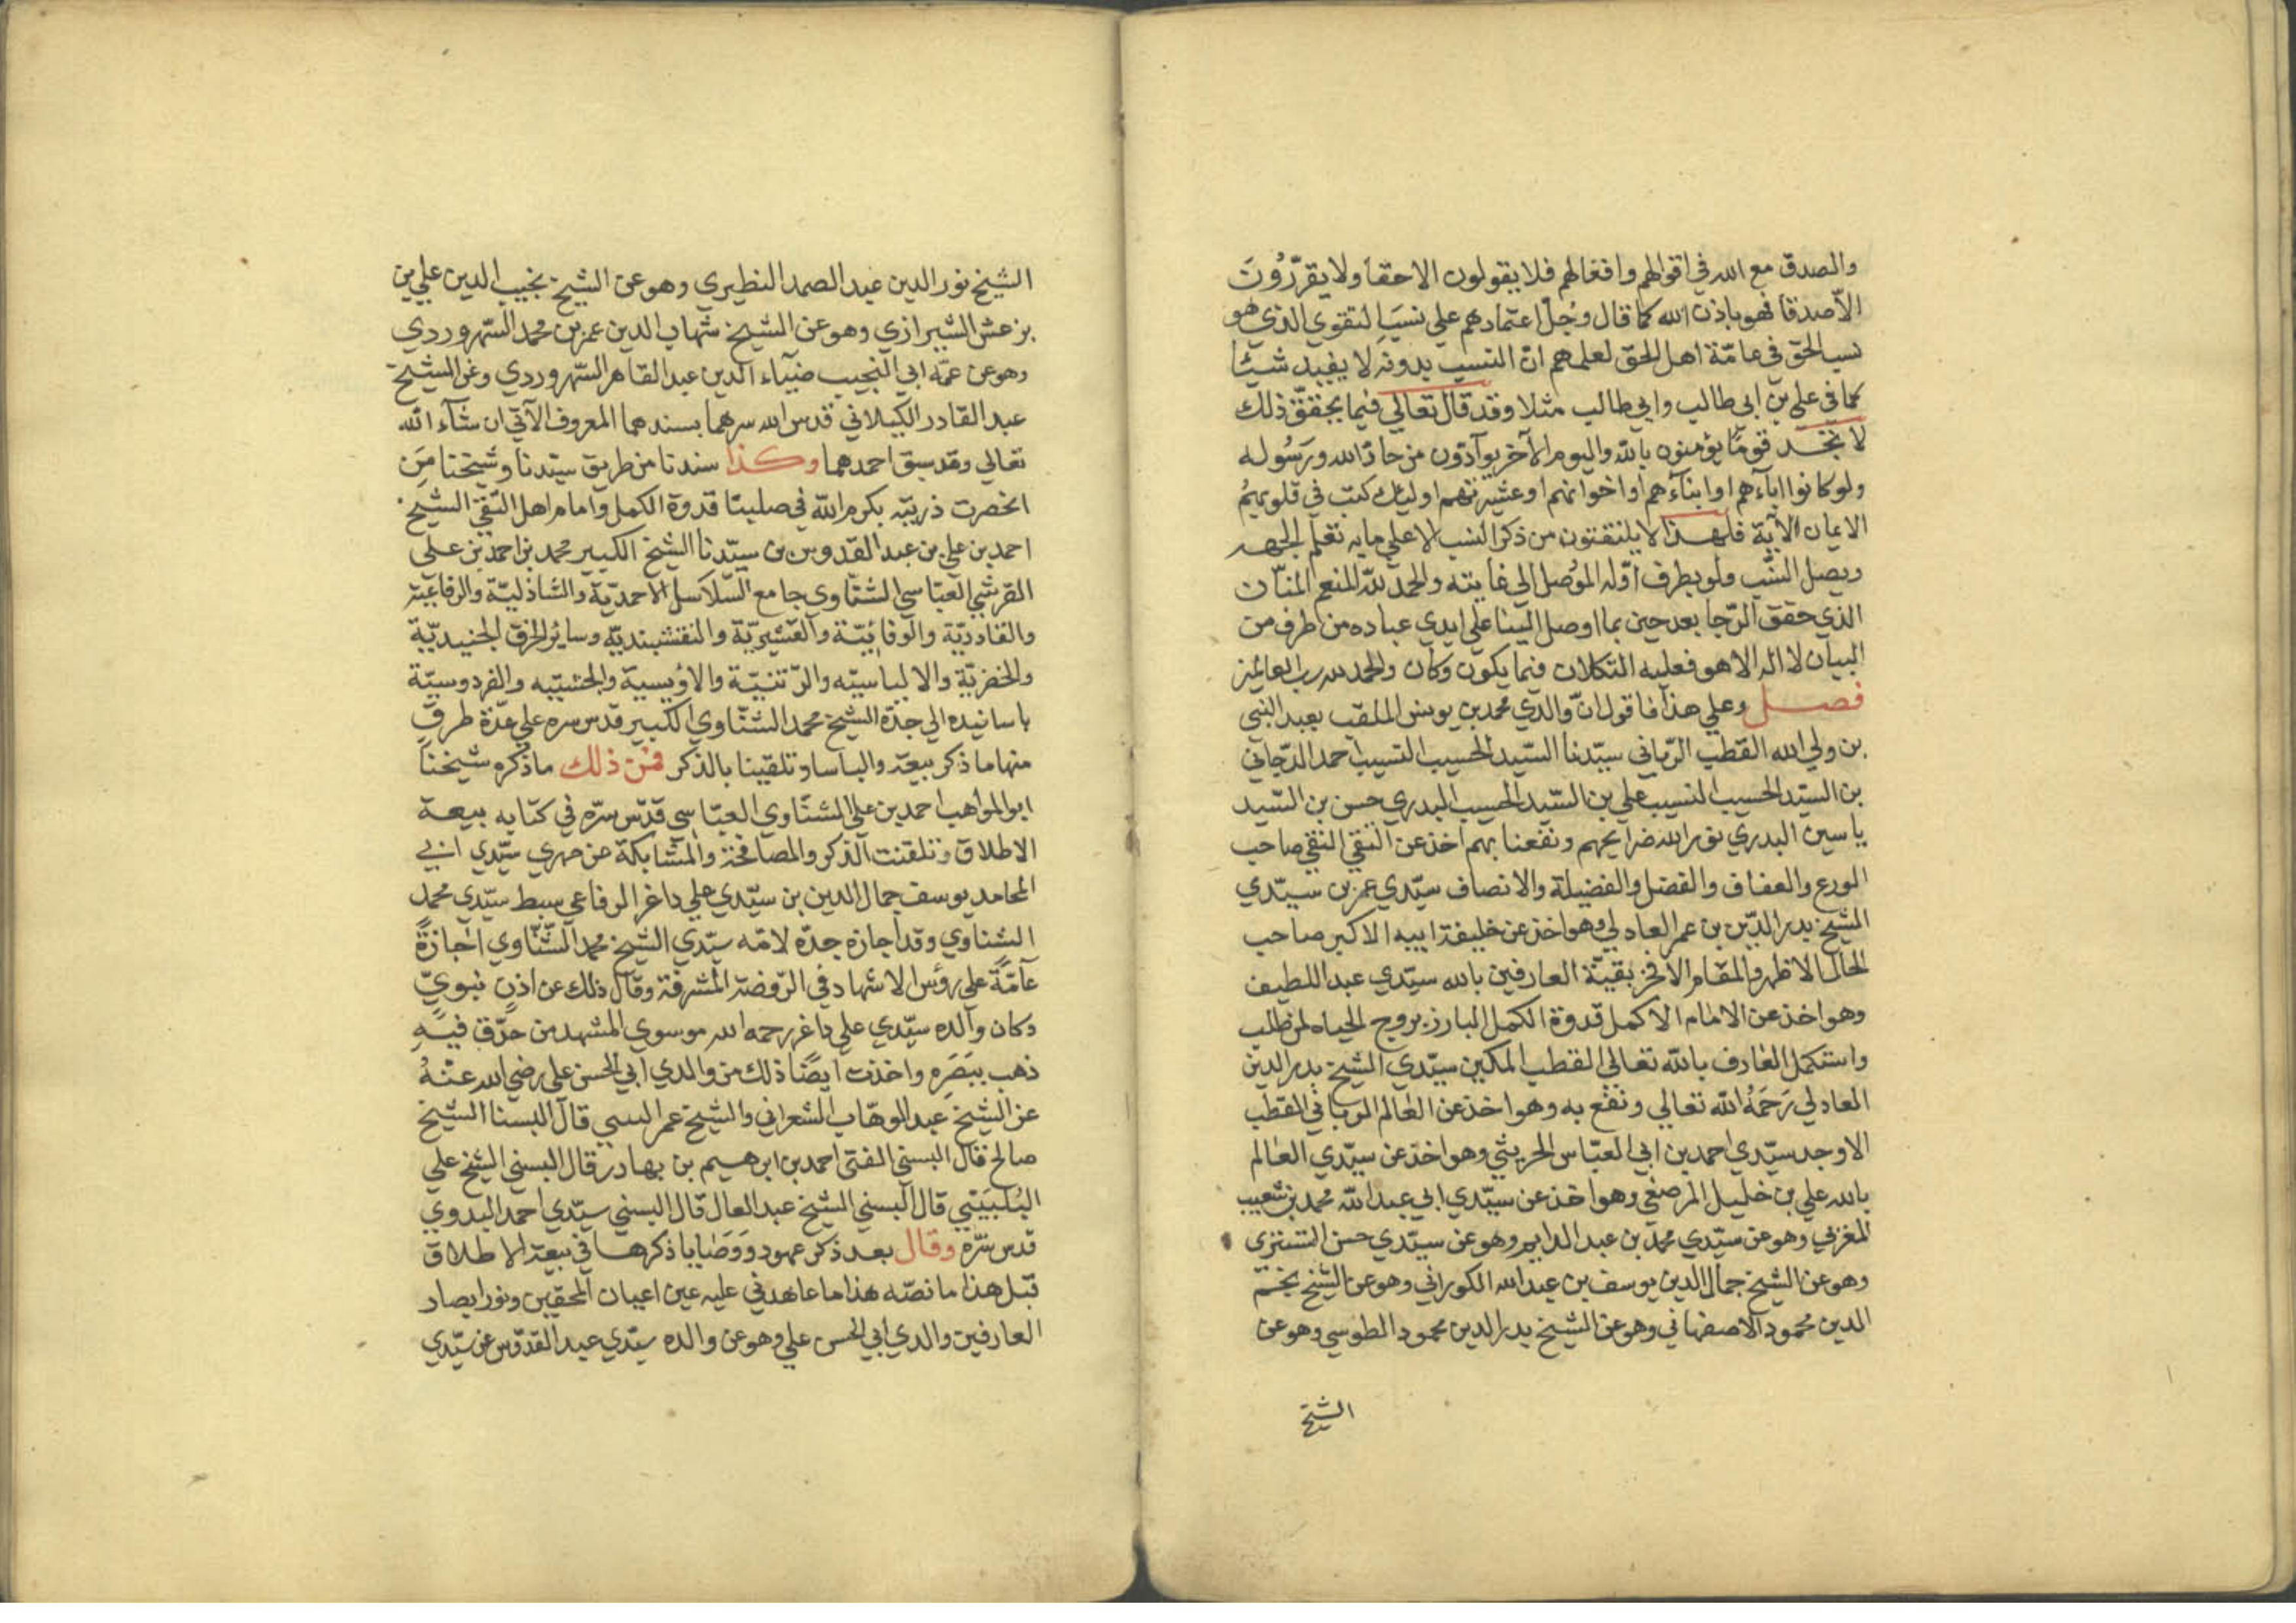 والصدق مع الله في اقوالهم وافعالهم فلا يقولون الا حقا ولا يقرّرُونَ
الاّ صدقا فهو باذن الله كما قال وجُلّ اعتمادهم علي نسب التقوي الذي هو
نسب الحق في عامّة اهل الحق لعلمهم انّ النسب بدونه لا يفيد شيئا
كما في علي بن ابي طالب وابي طالب مثلا وقد قال تعالي فيما يحقق ذلك
لا تجد قومًا يؤمنون بالله واليوم الآخر يوآدّون من حادّ الله ورَسُوله
ولو كانوا اباءهم او ابناءهم او اخوانهم او عشيرتهم اوليك كتب في قلوبهمُ
الايمان الآية فلهذا لا يلتفتون من ذكر النسب الا علي ما به تعلم الجهه
ويصل النسب ولو بطرف اوّله الموُصل الي غايته والحمد لله المنعم المنّان
الذي حقق الرّجا بعد حين بما اوصل الينا علي ايدي عباده من اطرف من
البيان لا اله الا هو فعليه التكلان فيما يكون وكان والحمد لله رب العالمين
فصل وعلي هذا فاقول انّ والدي محمد بن يونس الملقب بعبد النبي
بن ولي الله القطب الربّاني سيّدنا السّيد الحسيب النسيب احمد الدّجاني
بن السيّد الحسيب النسيب علي بن السّيد الحسيب البدري حسن بن السّيد
ياسين البدري نور الله ضرايحهم ونفعنا بهم اخذ عن التقي النقي صاحب
الورع والعفاف والفضل والفضيلة والانصاف سيّدي عمر بن سيّدي
الشيخ بدر الدّين بن عمر العادلي وهو اخذ عن خليفة ابيه الاكبر صاحب
الحال الاظهر والمقام الافخر بقيّة العارفين بالله سيّدي عبد اللطيف
وهو اخذ عن الامام الاكمل قدوة الكمّل البارز بروح الحياه لمن طلب
واستكمل العارف بالله تعالي القطب المكين سيّدي الشيخ بدر الدين
العادلي رَحمَهُ الله تعالي ونفع به وهو اخذ عن العالم الرباني القطب
الاوحد سيّدي احمد بن ابي العبّاس الحريثي وهو اخذ عن سيّدي العالم
بالله علي بن خليل المرصفي وهو اخذ عن سيّدي ابي عبد الله محمد بن شعيب
المغربي وهو عن سيّدي محمد بن عبد الدايم وهو عن سيّدي حسن التستري
وهو عن الشيخ جمال الدين يوسف بن عبد الله الكوراني وهو عن الشيخ نجم
الدين محمود الاصفهاني وهو عن الشيخ بدر الدين محمود الطوسي وهو عن
الشيخ
الشيخ نور الدين عبد الصمد النطيري وهو عن الشيخ نجيب الدين علي بن
بزعش الشيرازي وهو عن الشيخ شهاب الدين عمر بن محمد السّهروردي
وهو عن عمّه ابي النّجيب ضيآء الدين عبد القاهر السّهروردي وعن الشيخ
عبد القادر الكيلاني قدس الله سرهما بسندهما المعروف الآتي ان شآء الله
تعالي وقد سبق احمدهما وكذا سندنا من طريق سيّدنا وشيخنا مَن
انحصرت ذريّته بكرم الله في صلبيتا قدوة الكمل وامام اهل التّقي الشيخ
احمد بن علي بن عبد القدوس بن سيّدنا الشيخ الكبير محمد بن احمد بن علي
القرشي العبّاسي الشنّاوي جامع السّلاسل الاحمديّة والشاذليّة والرفاعية
والقادريّة والوفائيّة والقشيريّة والنقشبنديّه وساير الخرق الجنيديّة
والخضريّة والالياسيّه والرّتنيّة والاُويسية والجشتيّه والفردوسيّة
باسانيده الي جدّه الشيخ محمد الشنّاوي الكبير قدس سره علي عدّة طرق
منها ما ذكر بيعة والباسا وتلقينا بالذكر فمن ذلك ما ذكره شيخنا
ابو المواهب احمد بن علي الشنّاوي العبّاسي قدّس سرّه في كتابه بيعة
الاطلاق وتلقنت الذكر والمصافحة والمشابكة عن صهري سيّدي ابي
المحامد يوسف جمال الدين بن سيّدي علي داغر الرفاعي سبط سيّدي محمد
الشناوي وقد اجازه جدّه لامّه سيّدي الشيخ محمد الشّنّاوي اجازةً
عآمّةً علي رؤس الاشهاد في الرّوضة المشرفة وقال ذلك عن اذنٍ نبويّ
وكان وآلده سيّدي علي داغر رحمه الله موسوي المشهد من حدّق فيه
ذهب ببَصَرِه واخذت ايضًا ذلك من والدي ابي الحسن علي رضي الله عنهُ
عن الشيخ عبد الوهّاب الشعراني والشيخ عمر قال البسنا الشيخ
صالح قال البسني الفتي احمد بن ابرهيم بن بهادر قال البسني الشيخ علي
البُلبَيَتي قال البسني الشيخ عبد العال قال البسني سيّدي احمد البدوي
قدس سرّه وقال بعد ذكر عهود ووَصَايا ذكرها في بيعة الاطلاق
قبل هذا ما نصّه هذا ما عاهدني عليه عين اعيان المحقين ونور ابصار
العارفين والدي ابي الحسن علي وهو عن والده سيّدي عبد القدّوس عن سيّدي